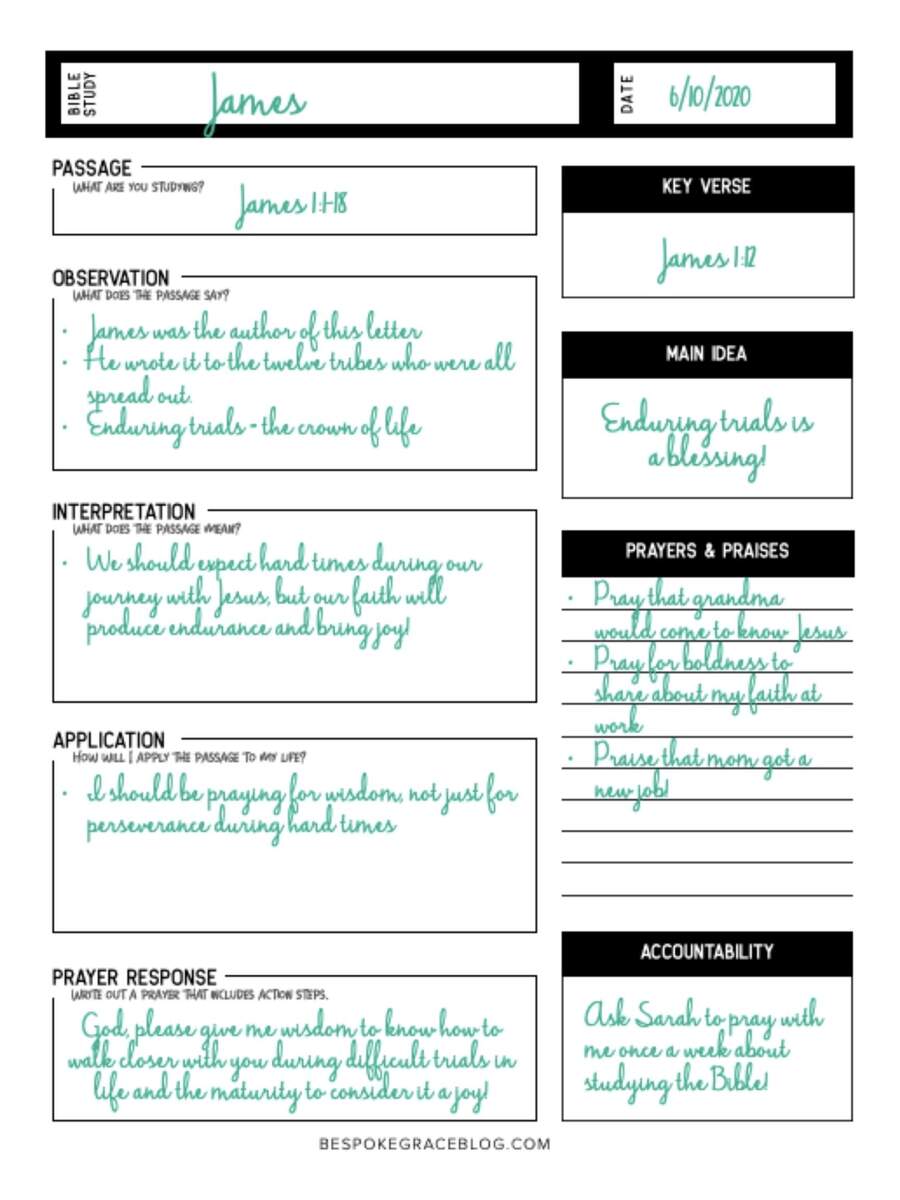 BIBLE STUDY
James
DATE
6/10/2020
PASSAGE
WHAT ARE YOU STUDYING?
James 1:1-18
OBSERVATION
WHAT DOES THE PASSAGE SAY?
• James was the author of this letter
• He wrote it to the twelve tribes who were all
spread out.
• Enduring trials - the crown of life
INTERPRETATION
WHAT DOES THE PASSAGE MEAN?
• We should expect hard times during our
journey with Jesus, but our faith will
produce endurance and bring joy!
APPLICATION
HOW WILL I APPLY THE PASSAGE TO MY LIFE?
• I should be praying for wisdom, not just for
perseverance during hard times
PRAYER RESPONSE
WRITE OUT A PRAYER THAT INCLUDES ACTION STEPS.
God, please give me wisdom to know how to
walk closer with you during difficult trials in
life and the maturity to consider it a joy!
KEY VERSE
James 1:12
MAIN IDEA
Enduring trials is
a blessing!
PRAYERS & PRAISES
• Pray that grandma
would come to know Jesus
• Pray for boldness to
share about my faith at
work
• Praise that mom got a
new job!
ACCOUNTABILITY
Ask Sarah to pray with
me once a week about
studying the Bible!
BESPOKEGRACEBLOG.COM